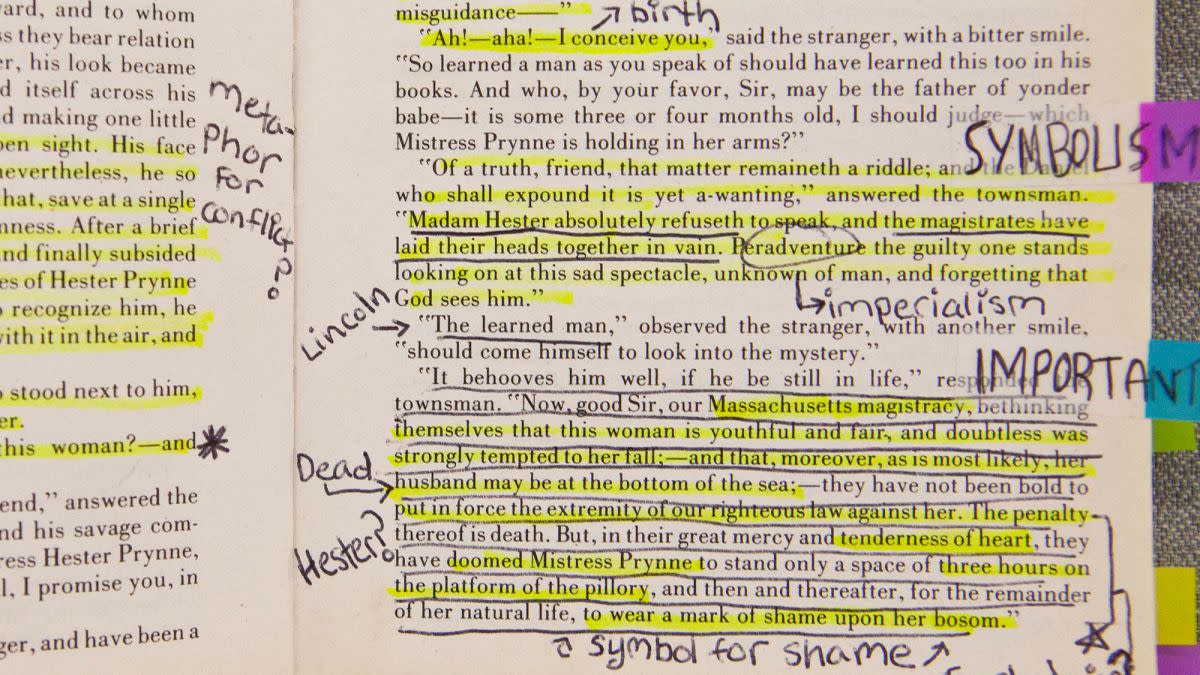 ard, and to whom
ss they bear relation
er, his look became
d itself across his
d making one little
pen sight. His face
nevertheless, he so
hat, save at a single
nness. After a brief
nd finally subsided
es of Hester Prynne
o recognize him, he
with it in the air, and
o stood next to him,
er.
this woman?—and
end," answered the
nd his savage com-
ress Hester Prynne,
l, I promise you, in
ger, and have been a
meta-
phor
for
conflict?
Lincoln
Dead
Hester?
misguidance——"
birth
"Ah!—aha!—I conceive you," said the stranger, with a bitter smile.
"So learned a man as you speak of should have learned this too in his
books. And who, by your favor, Sir, may be the father of yonder
babe—it is some three or four months old, I should judge—which
Mistress Prynne is holding in her arms?"
SYMBOLISM
"Of a truth, friend, that matter remaineth a riddle; and the Daniel
who shall expound it is yet a-wanting," answered the townsman.
"Madam Hester absolutely refuseth to speak, and the magistrates have
laid their heads together in vain. Peradventure the guilty one stands
looking on at this sad spectacle, unknown of man, and forgetting that
God sees him."
imperialism
"The learned man," observed the stranger, with another smile,
"should come himself to look into the mystery."
IMPORTANT
"It behooves him well, if he be still in life," responded the
townsman. "Now, good Sir, our Massachusetts magistracy, bethinking
themselves that this woman is youthful and fair, and doubtless was
strongly tempted to her fall;—and that, moreover, as is most likely, her
husband may be at the bottom of the sea;—they have not been bold to
put in force the extremity of our righteous law against her. The penalty
thereof is death. But, in their great mercy and tenderness of heart, they
have doomed Mistress Prynne to stand only a space of three hours on
the platform of the pillory, and then and thereafter, for the remainder
of her natural life, to wear a mark of shame upon her bosom."
symbol for shame